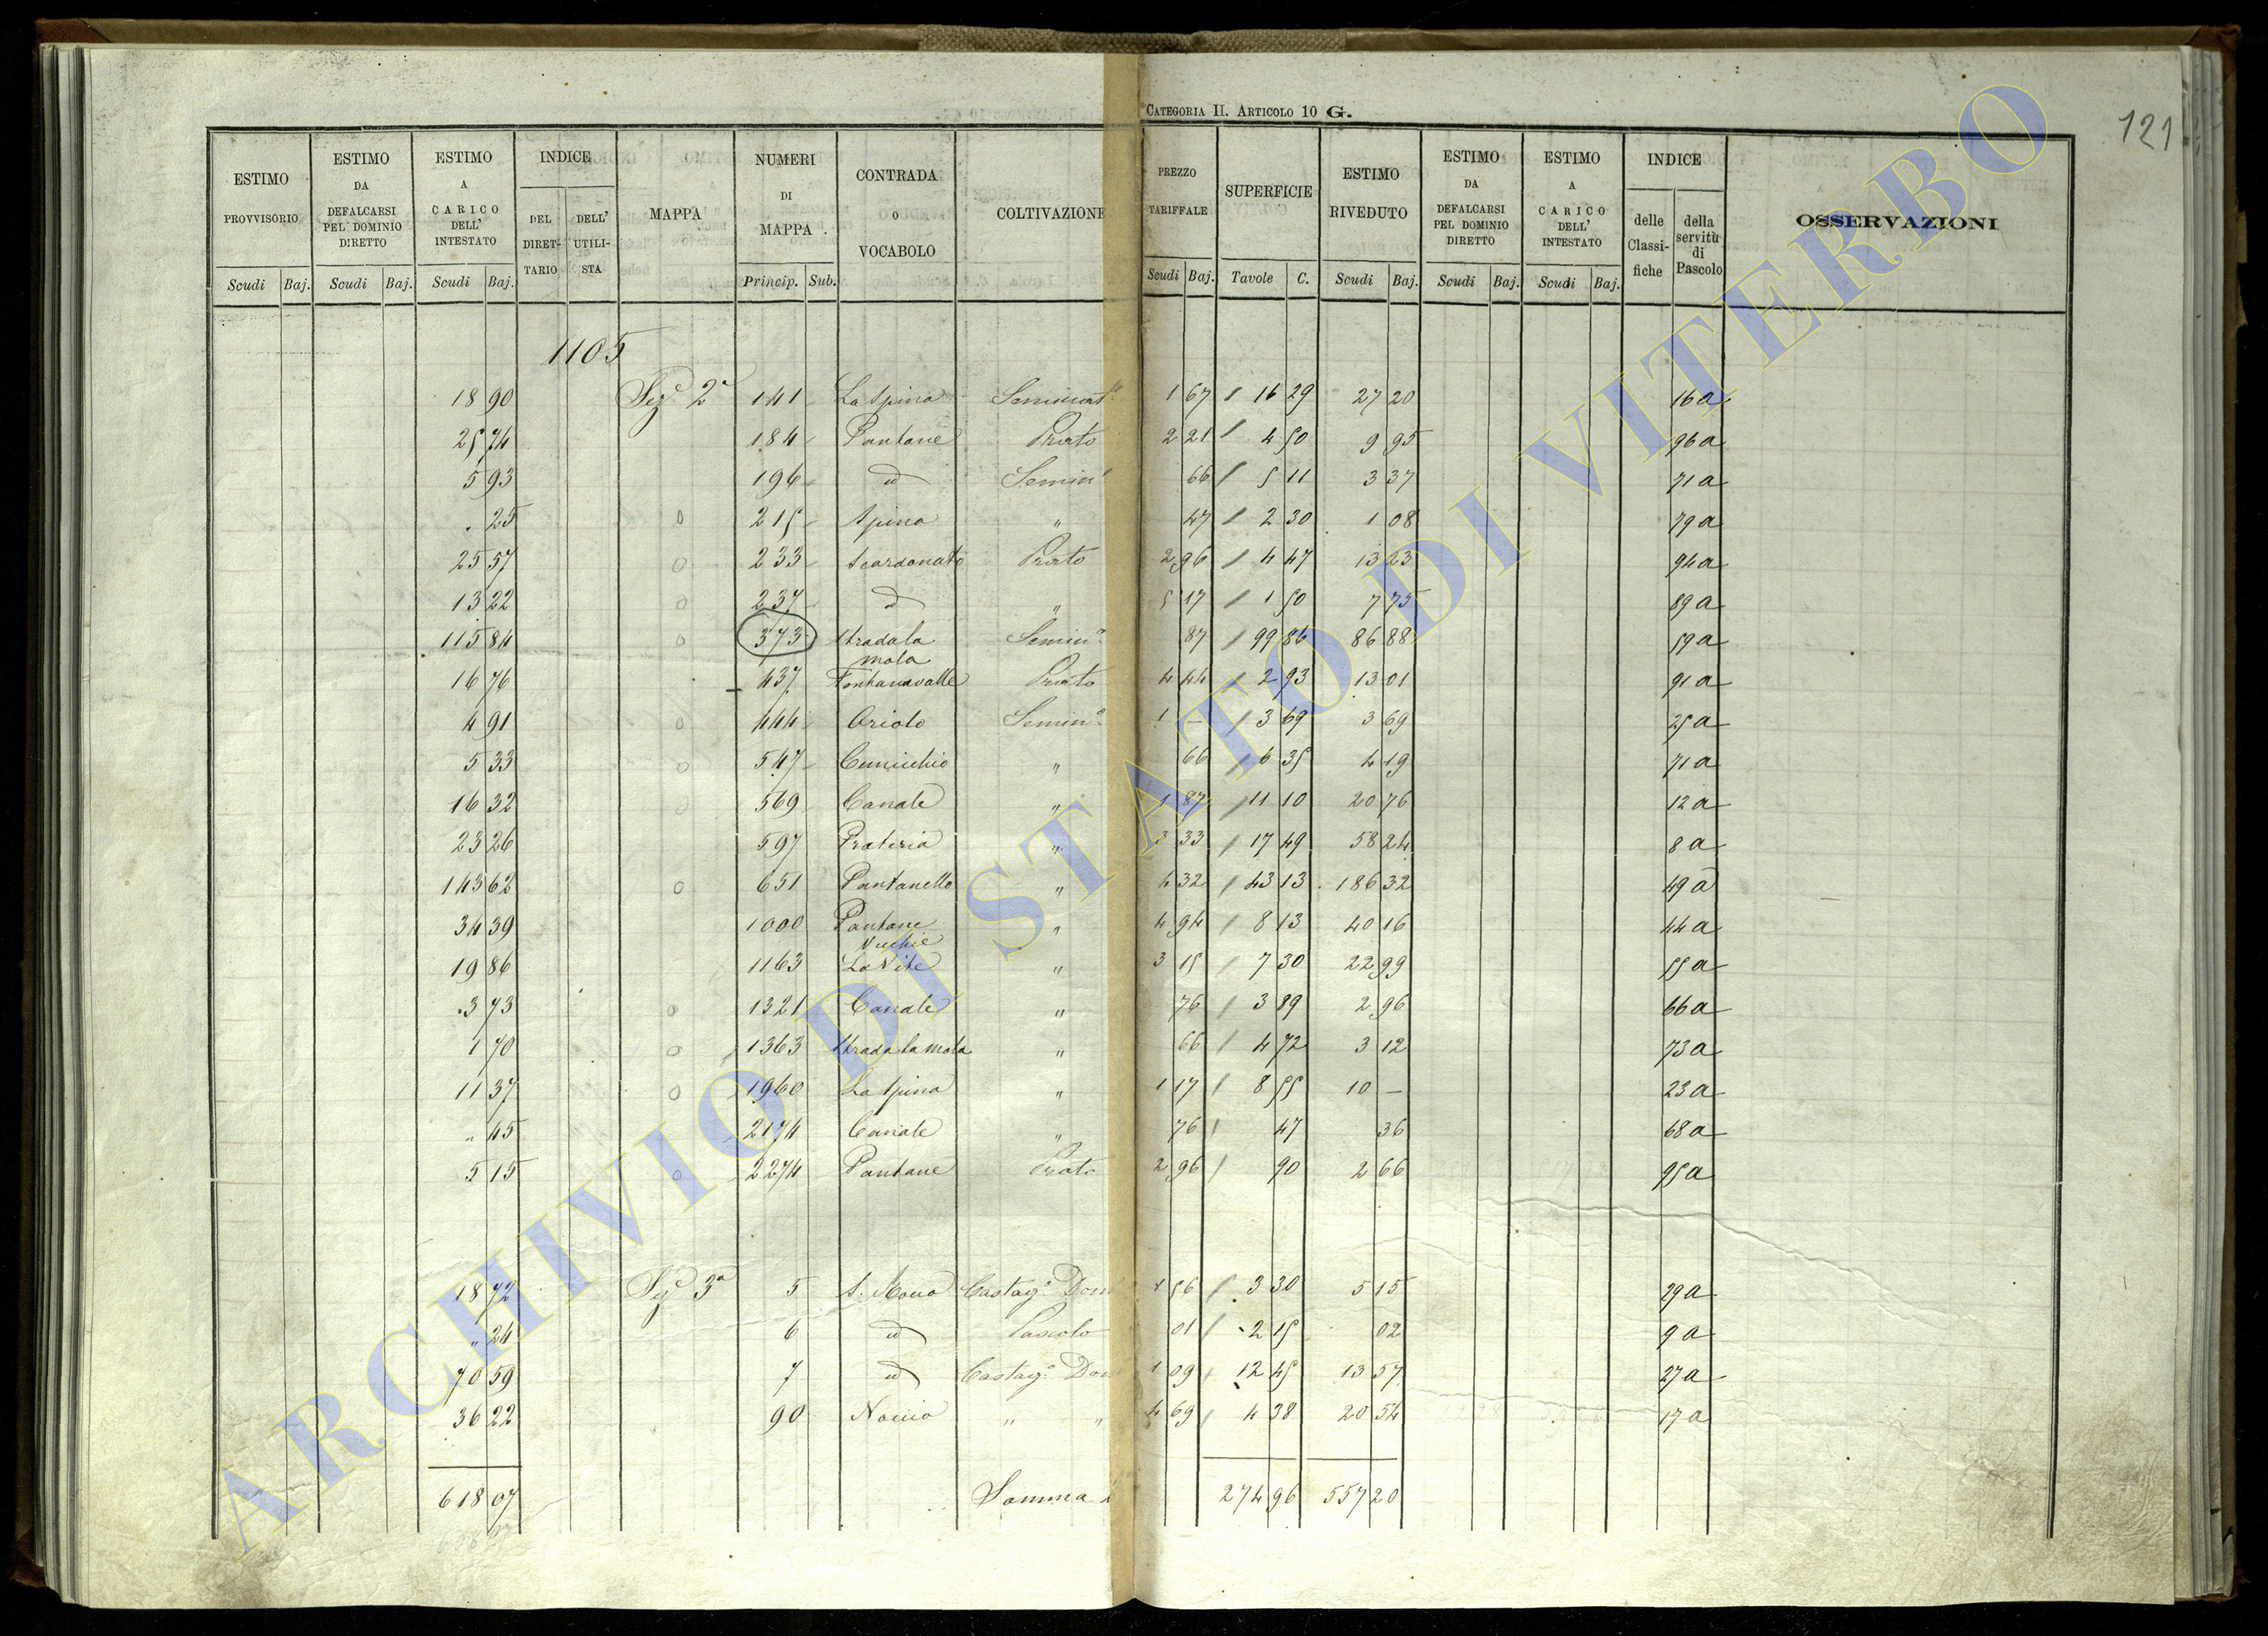 CATEGORIA II. ARTICOLO 10 G.
121
ESTIMO PROVVISORIO
ESTIMO DA DEFALCARSI PEL DOMINIO DIRETTO
ESTIMO A CARICO DELL' INTESTATO
INDICE
DEL DIRET-TARIO
DELL' UTILI-STA
MAPPA
NUMERI DI MAPPA
CONTRADA O VOCABOLO
COLTIVAZIONE
PREZZO TARIFFALE
SUPERFICIE
ESTIMO RIVEDUTO
ESTIMO DA DEFALCARSI PEL DOMINIO DIRETTO
ESTIMO A CARICO DELL' INTESTATO
INDICE
delle Classi-fiche
della servitù di Pascolo
OSSERVAZIONI
Scudi Baj. Scudi Baj. Scudi Baj. Princip. Sub. Scudi Baj. Tavole C. Scudi Baj. Scudi Baj. Scudi Baj.
1105
18 90 Sez 2a 141 La Spina Seminat 1 67 16 29 27 20 16a
25 74 184 Pantane Prato 2 21 4 50 9 95 96a
5 93 196 id Semin 66 5 11 3 37 71a
. 25 0 215 Spina " 47 2 30 1 08 79a
25 57 0 233 Scardonato Prato 2 96 4 47 13 23 94a
13 22 0 237 id " 5 17 1 50 7 75 89a
115 84 0 373 Strada la mola Semin.o 87 99 86 86 88 59a
16 76 437 Fontanavalle Prato 4 44 2 93 13 01 91a
4 91 0 444 Oriolo Semin.o 1 — 3 69 3 69 25a
5 33 0 547 Cunicchio " 66 6 35 4 19 71a
16 32 0 569 Canale " 1 87 11 10 20 76 12a
23 26 597 Prateria " 3 33 17 49 58 24 8a
143 62 0 651 Pantanelle " 4 32 43 13 186 32 49a
34 39 1000 Pantane Vecchie " 4 94 8 13 40 16 44a
19 86 1163 La Vite " 3 15 7 30 22 99 55a
3 73 0 1321 Canale " 76 3 89 2 96 66a
1 70 0 1363 Strada la mola " 66 4 72 3 12 73a
11 37 0 1960 La Spina " 1 17 8 55 10 — 23a
" 45 2174 Canale " 76 47 36 68a
5 15 0 2274 Pantane Prato 2 96 90 2 66 95a
18 72 Sez 3a 5 Castag.o Dom 1 56 3 30 5 15 29a
" 24 6 id Pascolo 01 2 15 02 9a
70 59 7 id Castag.o Dom 1 09 12 45 13 57 27a
36 22 90 " " 4 69 4 38 20 54 17a
618 07 Somma 274 96 557 20
ARCHIVIO DI STATO DI VITERBO